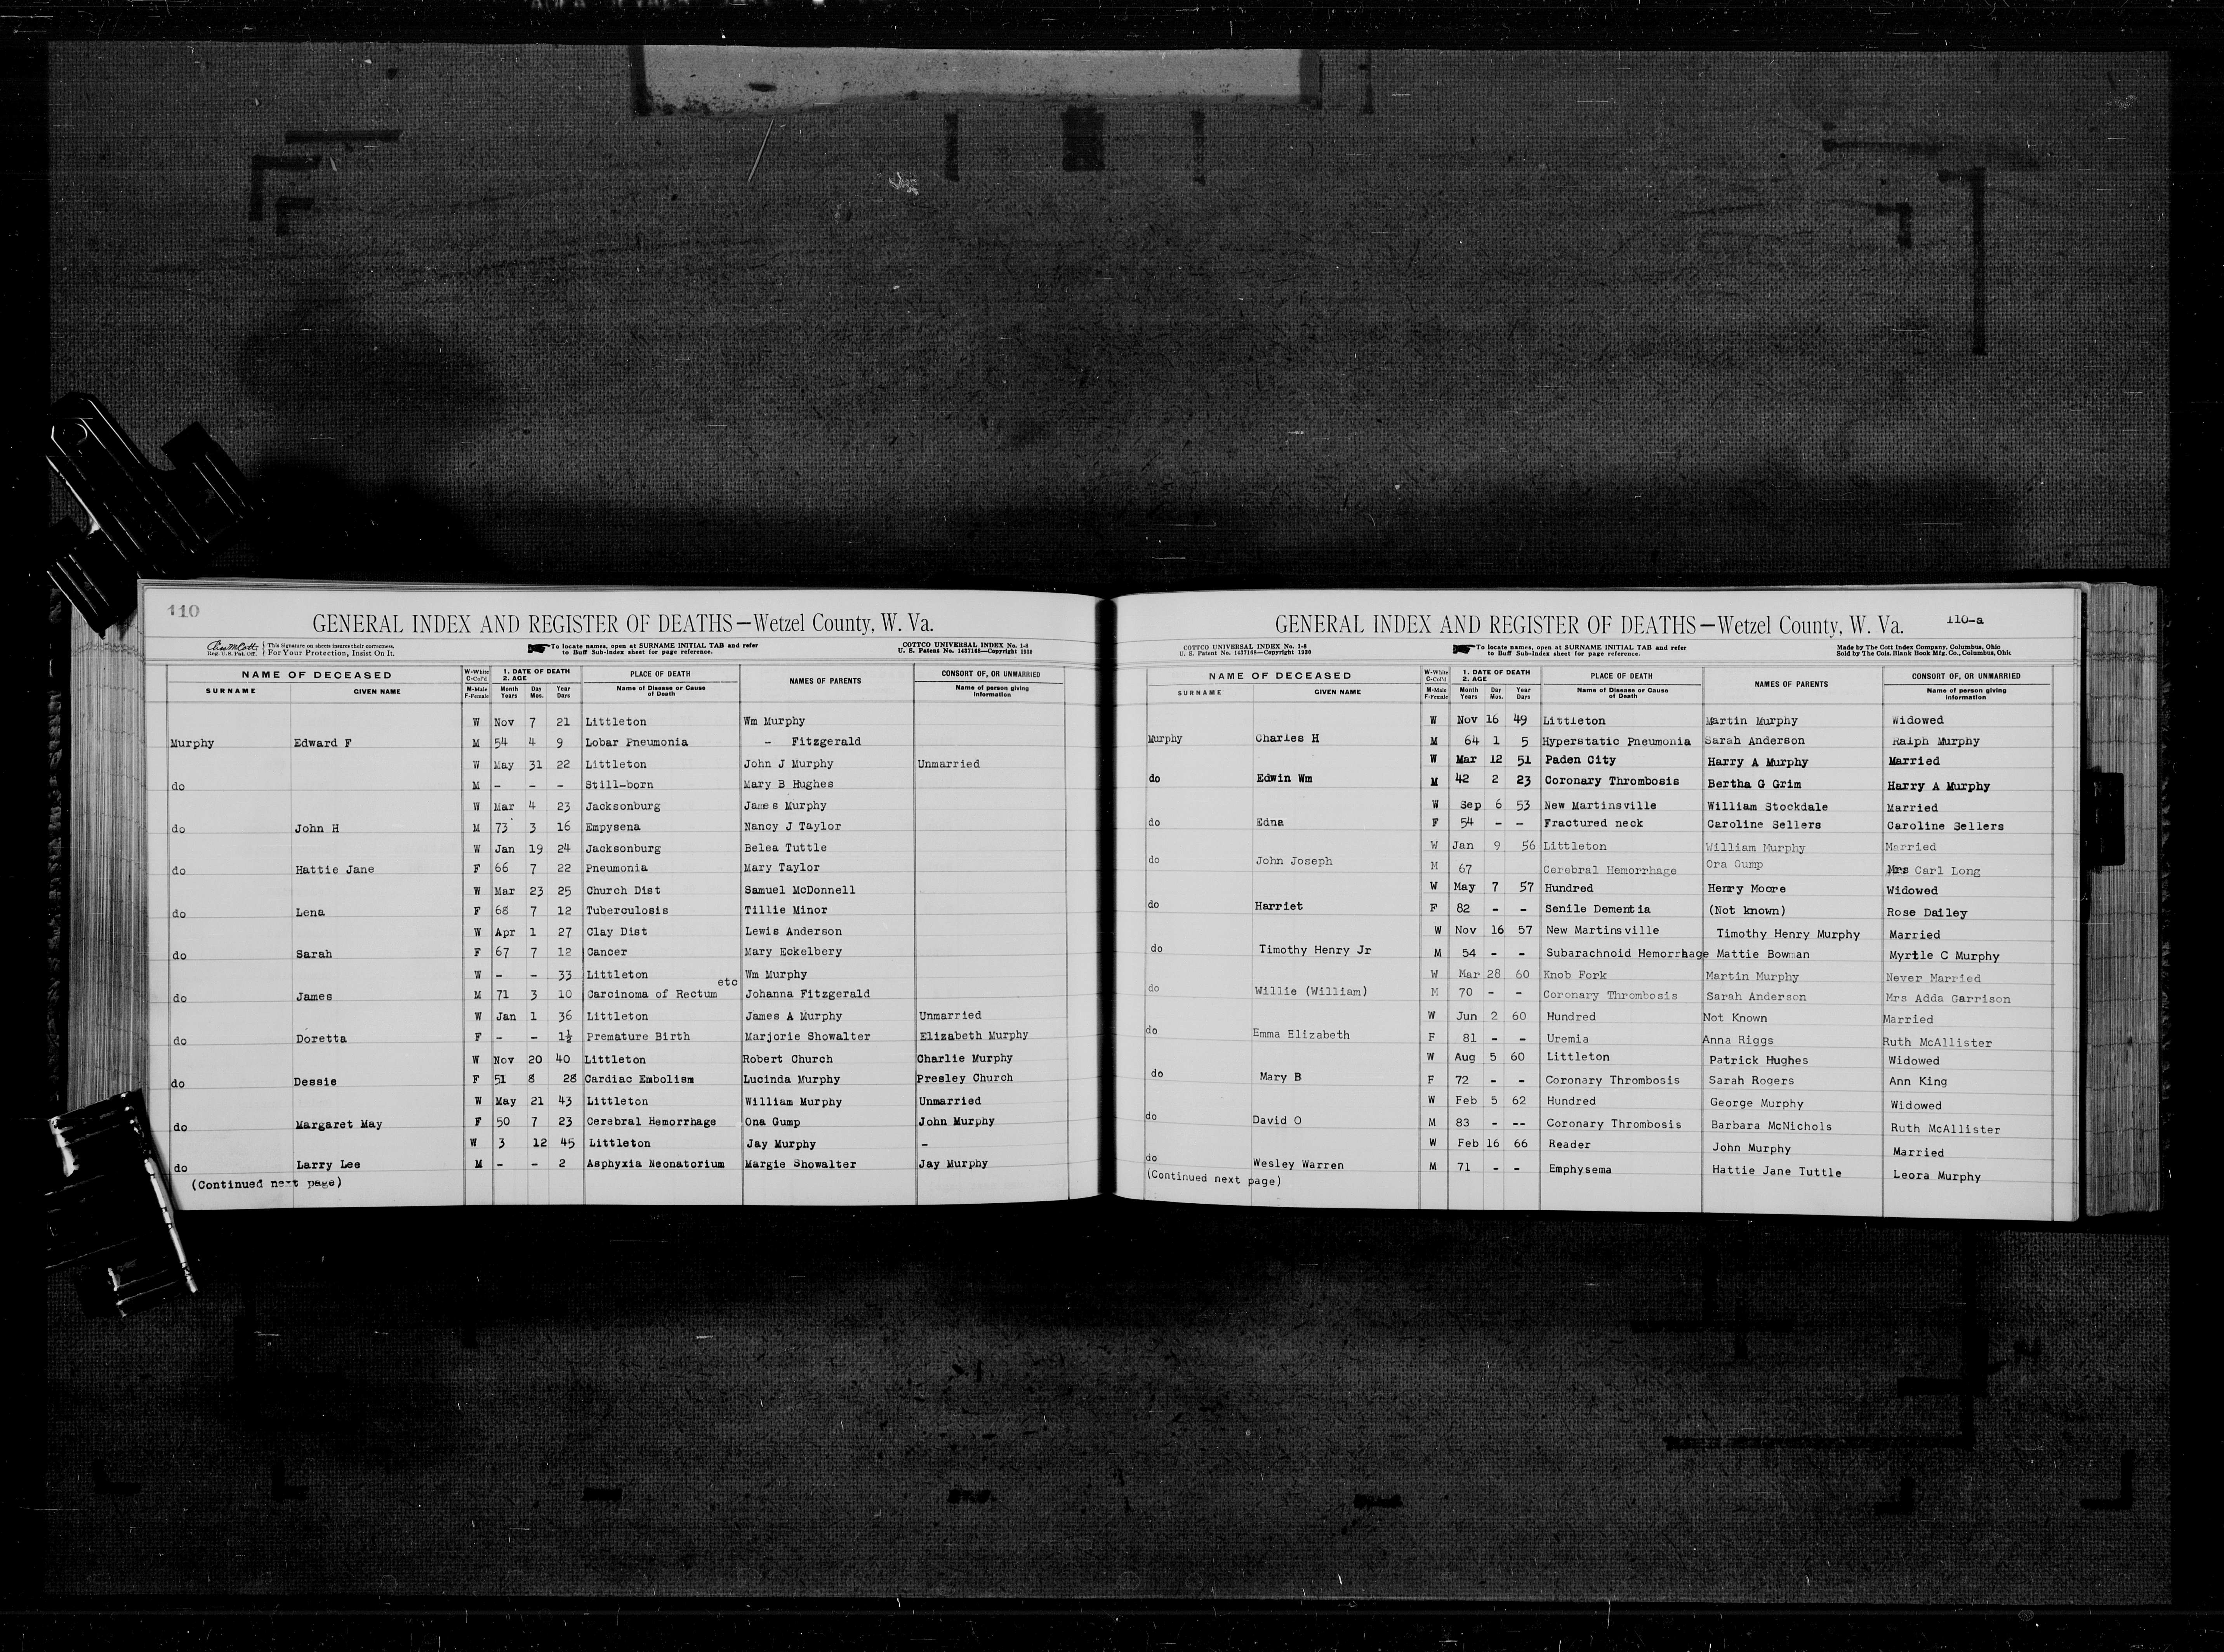 110
GENERAL INDEX AND REGISTER OF DEATHS—Wetzel County, W. Va.
Reg. U. S. Pat. Off. This Signature on sheets insures their correctness. For Your Protection, Insist On It.
To locate names, open at SURNAME INITIAL TAB and refer to Buff Sub-Index sheet for page reference.
COTTCO UNIVERSAL INDEX No. I-8
U. S. Patent No. 1437168—Copyright 1930
NAME OF DECEASED W-White C-Col'd 1. DATE OF DEATH 2. AGE PLACE OF DEATH NAMES OF PARENTS CONSORT OF, OR UNMARRIED
SURNAME GIVEN NAME M-Male F-Female Month Years Day Mos. Year Days Name of Disease or Cause of Death Name of person giving information
W Nov 7 21 Littleton Wm Murphy
Murphy Edward F M 54 4 9 Lobar Pneumonia - Fitzgerald
W May 31 22 Littleton John J Murphy Unmarried
do M - - - Still-born Mary B Hughes
W Mar 4 23 Jacksonburg James Murphy
do John H M 73 3 16 Empysena Nancy J Taylor
W Jan 19 24 Jacksonburg Belea Tuttle
do Hattie Jane F 66 7 22 Pneumonia Mary Taylor
W Mar 23 25 Church Dist Samuel McDonnell
do Lena F 68 7 12 Tuberculosis Tillie Minor
W Apr 1 27 Clay Dist Lewis Anderson
do Sarah F 67 7 12 Cancer Mary Eckelbery
W - - 33 Littleton Wm Murphy
etc
do James M 71 3 10 Carcinoma of Rectum Johanna Fitzgerald
W Jan 1 36 Littleton James A Murphy Unmarried
do Doretta F - - 1½ Premature Birth Marjorie Showalter Elizabeth Murphy
W Nov 20 40 Littleton Robert Church Charlie Murphy
do Dessie F 51 8 28 Cardiac Embolism Lucinda Murphy Presley Church
W May 21 43 Littleton William Murphy Unmarried
do Margaret May F 50 7 23 Cerebral Hemorrhage Ona Gump John Murphy
W 3 12 45 Littleton Jay Murphy -
do Larry Lee M - - 2 Asphyxia Neonatorium Margie Showalter Jay Murphy
(Continued next page)
GENERAL INDEX AND REGISTER OF DEATHS—Wetzel County, W. Va. 110-a
COTTCO UNIVERSAL INDEX No. I-8
U. S. Patent No. 1437168—Copyright 1930
To locate names, open at SURNAME INITIAL TAB and refer to Buff Sub-Index sheet for page reference.
Made by The Cott Index Company, Columbus, Ohio
Sold by The Cols. Blank Book Mfg. Co., Columbus, Ohio
NAME OF DECEASED W-White C-Col'd 1. DATE OF DEATH 2. AGE PLACE OF DEATH NAMES OF PARENTS CONSORT OF, OR UNMARRIED
SURNAME GIVEN NAME M-Male F-Female Month Years Day Mos. Year Days Name of Disease or Cause of Death Name of person giving information
W Nov 16 49 Littleton Martin Murphy Widowed
Murphy Charles H M 64 1 5 Hyperstatic Pneumonia Sarah Anderson Ralph Murphy
W Mar 12 51 Paden City Harry A Murphy Married
do Edwin Wm M 42 2 23 Coronary Thrombosis Bertha G Grim Harry A Murphy
W Sep 6 53 New Martinsville William Stockdale Married
do Edna F 54 - - Fractured neck Caroline Sellers Caroline Sellers
W Jan 9 56 Littleton William Murphy Married
do John Joseph M 67 Cerebral Hemorrhage Ora Gump Mrs Carl Long
W May 7 57 Hundred Henry Moore Widowed
do Harriet F 82 - - Senile Dementia (Not known) Rose Dailey
W Nov 16 57 New Martinsville Timothy Henry Murphy Married
do Timothy Henry Jr M 54 - - Subarachnoid Hemorrhage Mattie Bowman Myrtle C Murphy
W Mar 28 60 Knob Fork Martin Murphy Never Married
do Willie (William) M 70 - - Coronary Thrombosis Sarah Anderson Mrs Adda Garrison
W Jun 2 60 Hundred Not Known Married
do Emma Elizabeth F 81 - - Uremia Anna Riggs Ruth McAllister
W Aug 5 60 Littleton Patrick Hughes Widowed
do Mary B F 72 - - Coronary Thrombosis Sarah Rogers Ann King
W Feb 5 62 Hundred George Murphy Widowed
do David O M 83 - -- Coronary Thrombosis Barbara McNichols Ruth McAllister
W Feb 16 66 Reader John Murphy Married
do Wesley Warren M 71 - - Emphysema Hattie Jane Tuttle Leora Murphy
(Continued next page)